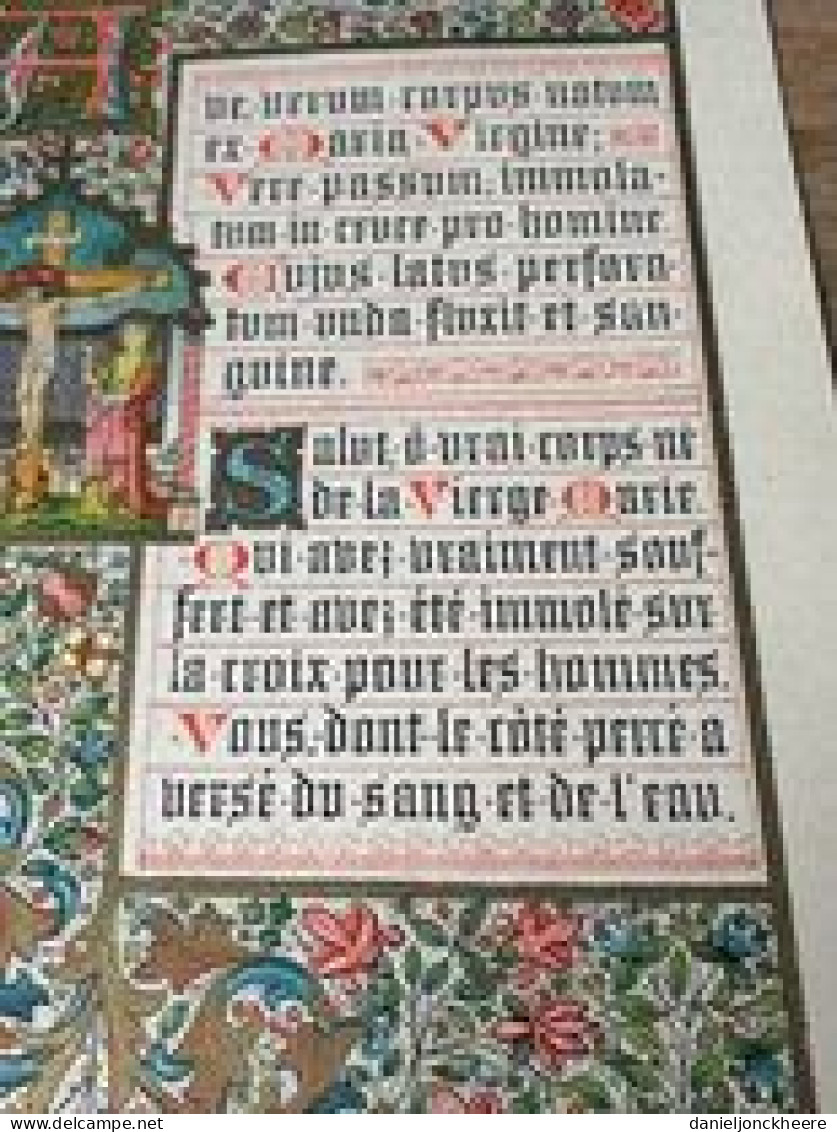 ve, verum corpus natum
ex Maria Virgine;
Vere passum, immola-
tum in cruce pro homine
Cujus latus perfora-
tum unda fluxit et san-
guine.
Salut, ô vrai corps né
de la Vierge Marie
Qui avez vraiment souf-
fert et avez été immolé sur
la croix pour les hommes.
Vous, dont le côté percé a
versé du sang et de l'eau.
www.delcampe.net
danieljonckheere